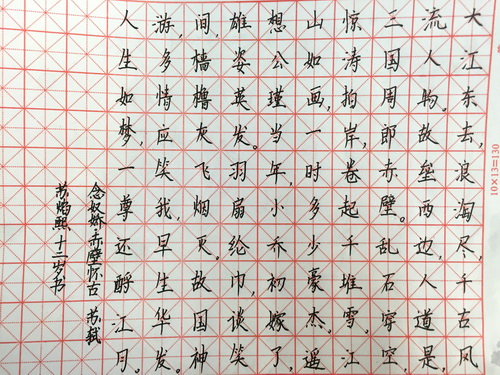 大江东去,浪淘尽,千古风
流人物。故垒西边,人道是,
三国周郎赤壁。乱石穿空,
惊涛拍岸,卷起千堆雪。江
山如画,一时多少豪杰。遥
想公瑾当年,小乔初嫁了,
雄姿英发。羽扇纶巾,谈笑
间,樯橹灰飞烟灭。故国神
游,多情应笑我,早生华发。
人生如梦,一尊还酹江月。
念奴娇赤壁怀古 苏轼
苏焰熙十二岁书
10×13=130